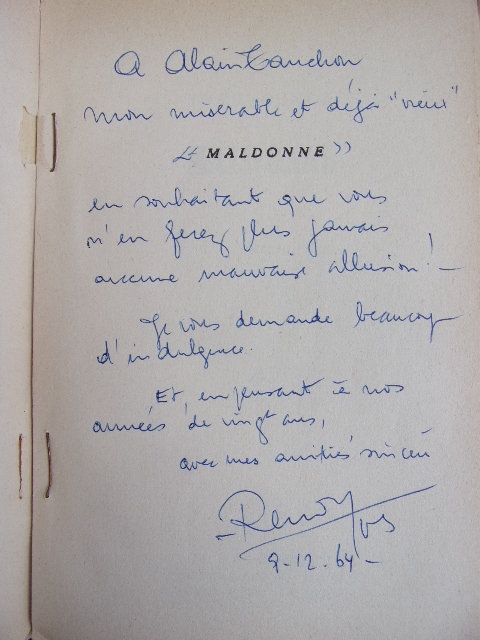 A Alain Gauchon
mon misérable et déjà "vieux"
" MALDONNE "
en souhaitant que vous
n'en ferez plus jamais
aucune mauvaise allusion ! –
Je vous demande beaucoup
d'indulgence.
Et, en pensant à nos
années de vingt ans,
avec mes amitiés sincères
9.12.64 –